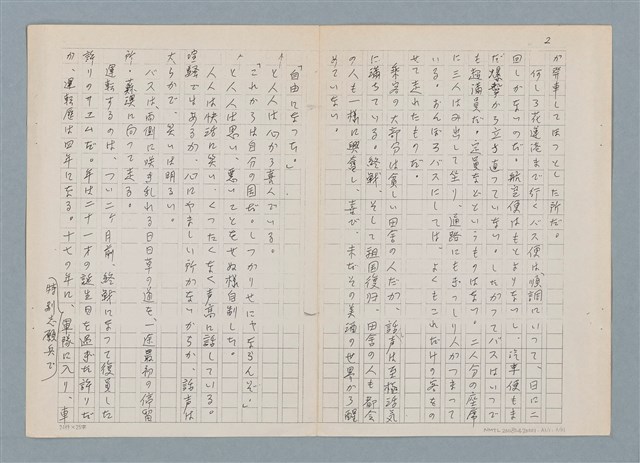 2
が卒車してほっとした所だ。
何しろ花蓮港まで行くバス便は順調にいって、日に二
回しかないのだ。航空便はもとよりないし、汽車便もま
だ爆撃から立ち直っていない。したがってバスはいつで
も超満員だ。定員などというものはない。二人分の座席
に三人はみ出して坐り、通路にもぎっしり人がつまって
いる。おんぼろバスにしては、よくもこれだけの客をの
せて走れたものだ。
乗客の大部分は貧しい田舎の人だが、話声は至極活気
に満ちている。終戦、そして祖国復帰、田舎の人も都会
の人も一様に興奮し、喜び、未だその美酒の世界から醒
めていない。
「自由になった。」
と人人は心から喜んでいる。
「これからは自分の国だ。しっかりせにゃならんぞ。」
と人人は思い、悪いことをせぬ様自制した。
人人は快活に笑い、くったくなく声高に話している。
窄縁でもあるが、心にやましい所がないから、話声は
大らかで、笑いは明るい。
バスは、両側に咲き乱れる日日草の道を、一途最初の停留
所・蘇澳に向って走る。
運転するのは、つい二ケ月前、終戦になって復員した
許りのサエムだ。年は二十一才の誕生日を過ぎた許りだ
が、運転歴は四年になる。十七の年に、軍隊に入り、車
特別志願兵で